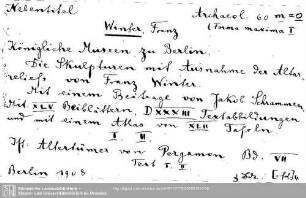 Nebentitel
Archaeol. 60 m =
Winter, Franz (Forma maxima I
Königliche Museen zu Berlin.
Die Skulpturen mit Ausnahme der Altar-
reliefs von Franz Winter.
Mit einem Beitrage von Jakob Schrammen
Mit XLV Beiblättern, DXXXIII Textabbildungen
und mit einem Atlas von XLII Tafeln
I II
Ist: Altertümer von Pergamon Bd. VII
Text 1. 2
Berlin 1908